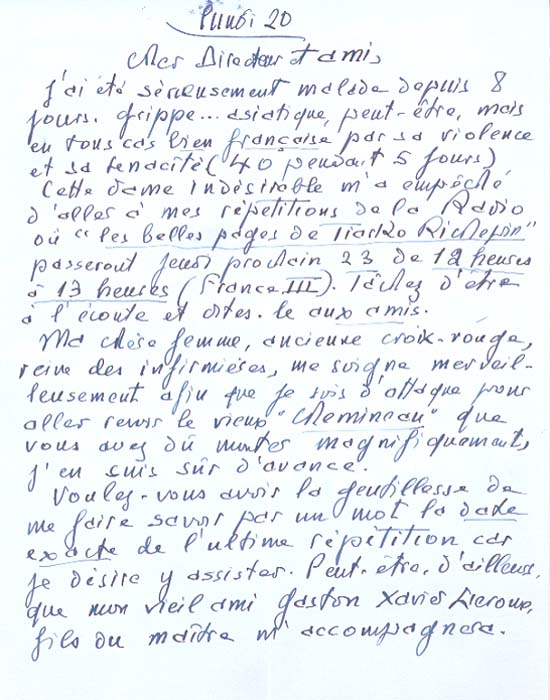 Lundi 20
Cher Directeur et ami,
J'ai été sérieusement malade depuis 8
jours. Grippe... asiatique, peut-être, mais
en tous cas bien française par sa violence
et sa tenacité (40 pendant 5 jours)
Cette dame indésirable m'a empêché
d'aller à mes répétitions de la Radio
où "les belles pages de Tiarko Richepin"
passeront jeudi prochain 23 de 12 heures
à 13 heures (France III). Tâchez d'être
à l'écoute et dites-le aux amis.
Ma chère femme, ancienne croix-rouge,
reine des infirmières, me soigne merveil-
leusement afin que je sois d'attaque pour
aller revoir le vieux "Chemineau" que
vous avez dû monter magnifiquement,
j'en suis sûr d'avance.
Voulez-vous avoir la gentillesse de
me faire savoir par un mot la date
exacte de l'ultime répétition car
je désire y assister. Peut-être, d'ailleurs,
que mon vieil ami Gaston Xavier Leroux,
fils du maître m'accompagnera.